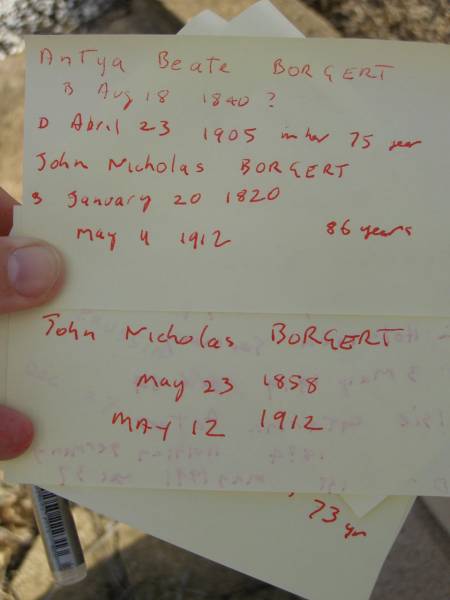 Antya Beate BORGERT
B Aug 18 1840 ?
D Abril 23 1905 in her 75 year
John Nicholas BORGERT
B January 20 1820
May 4 1912 86 years
John Nicholas BORGERT
May 23 1858
MAY 12 1912
73 yrs